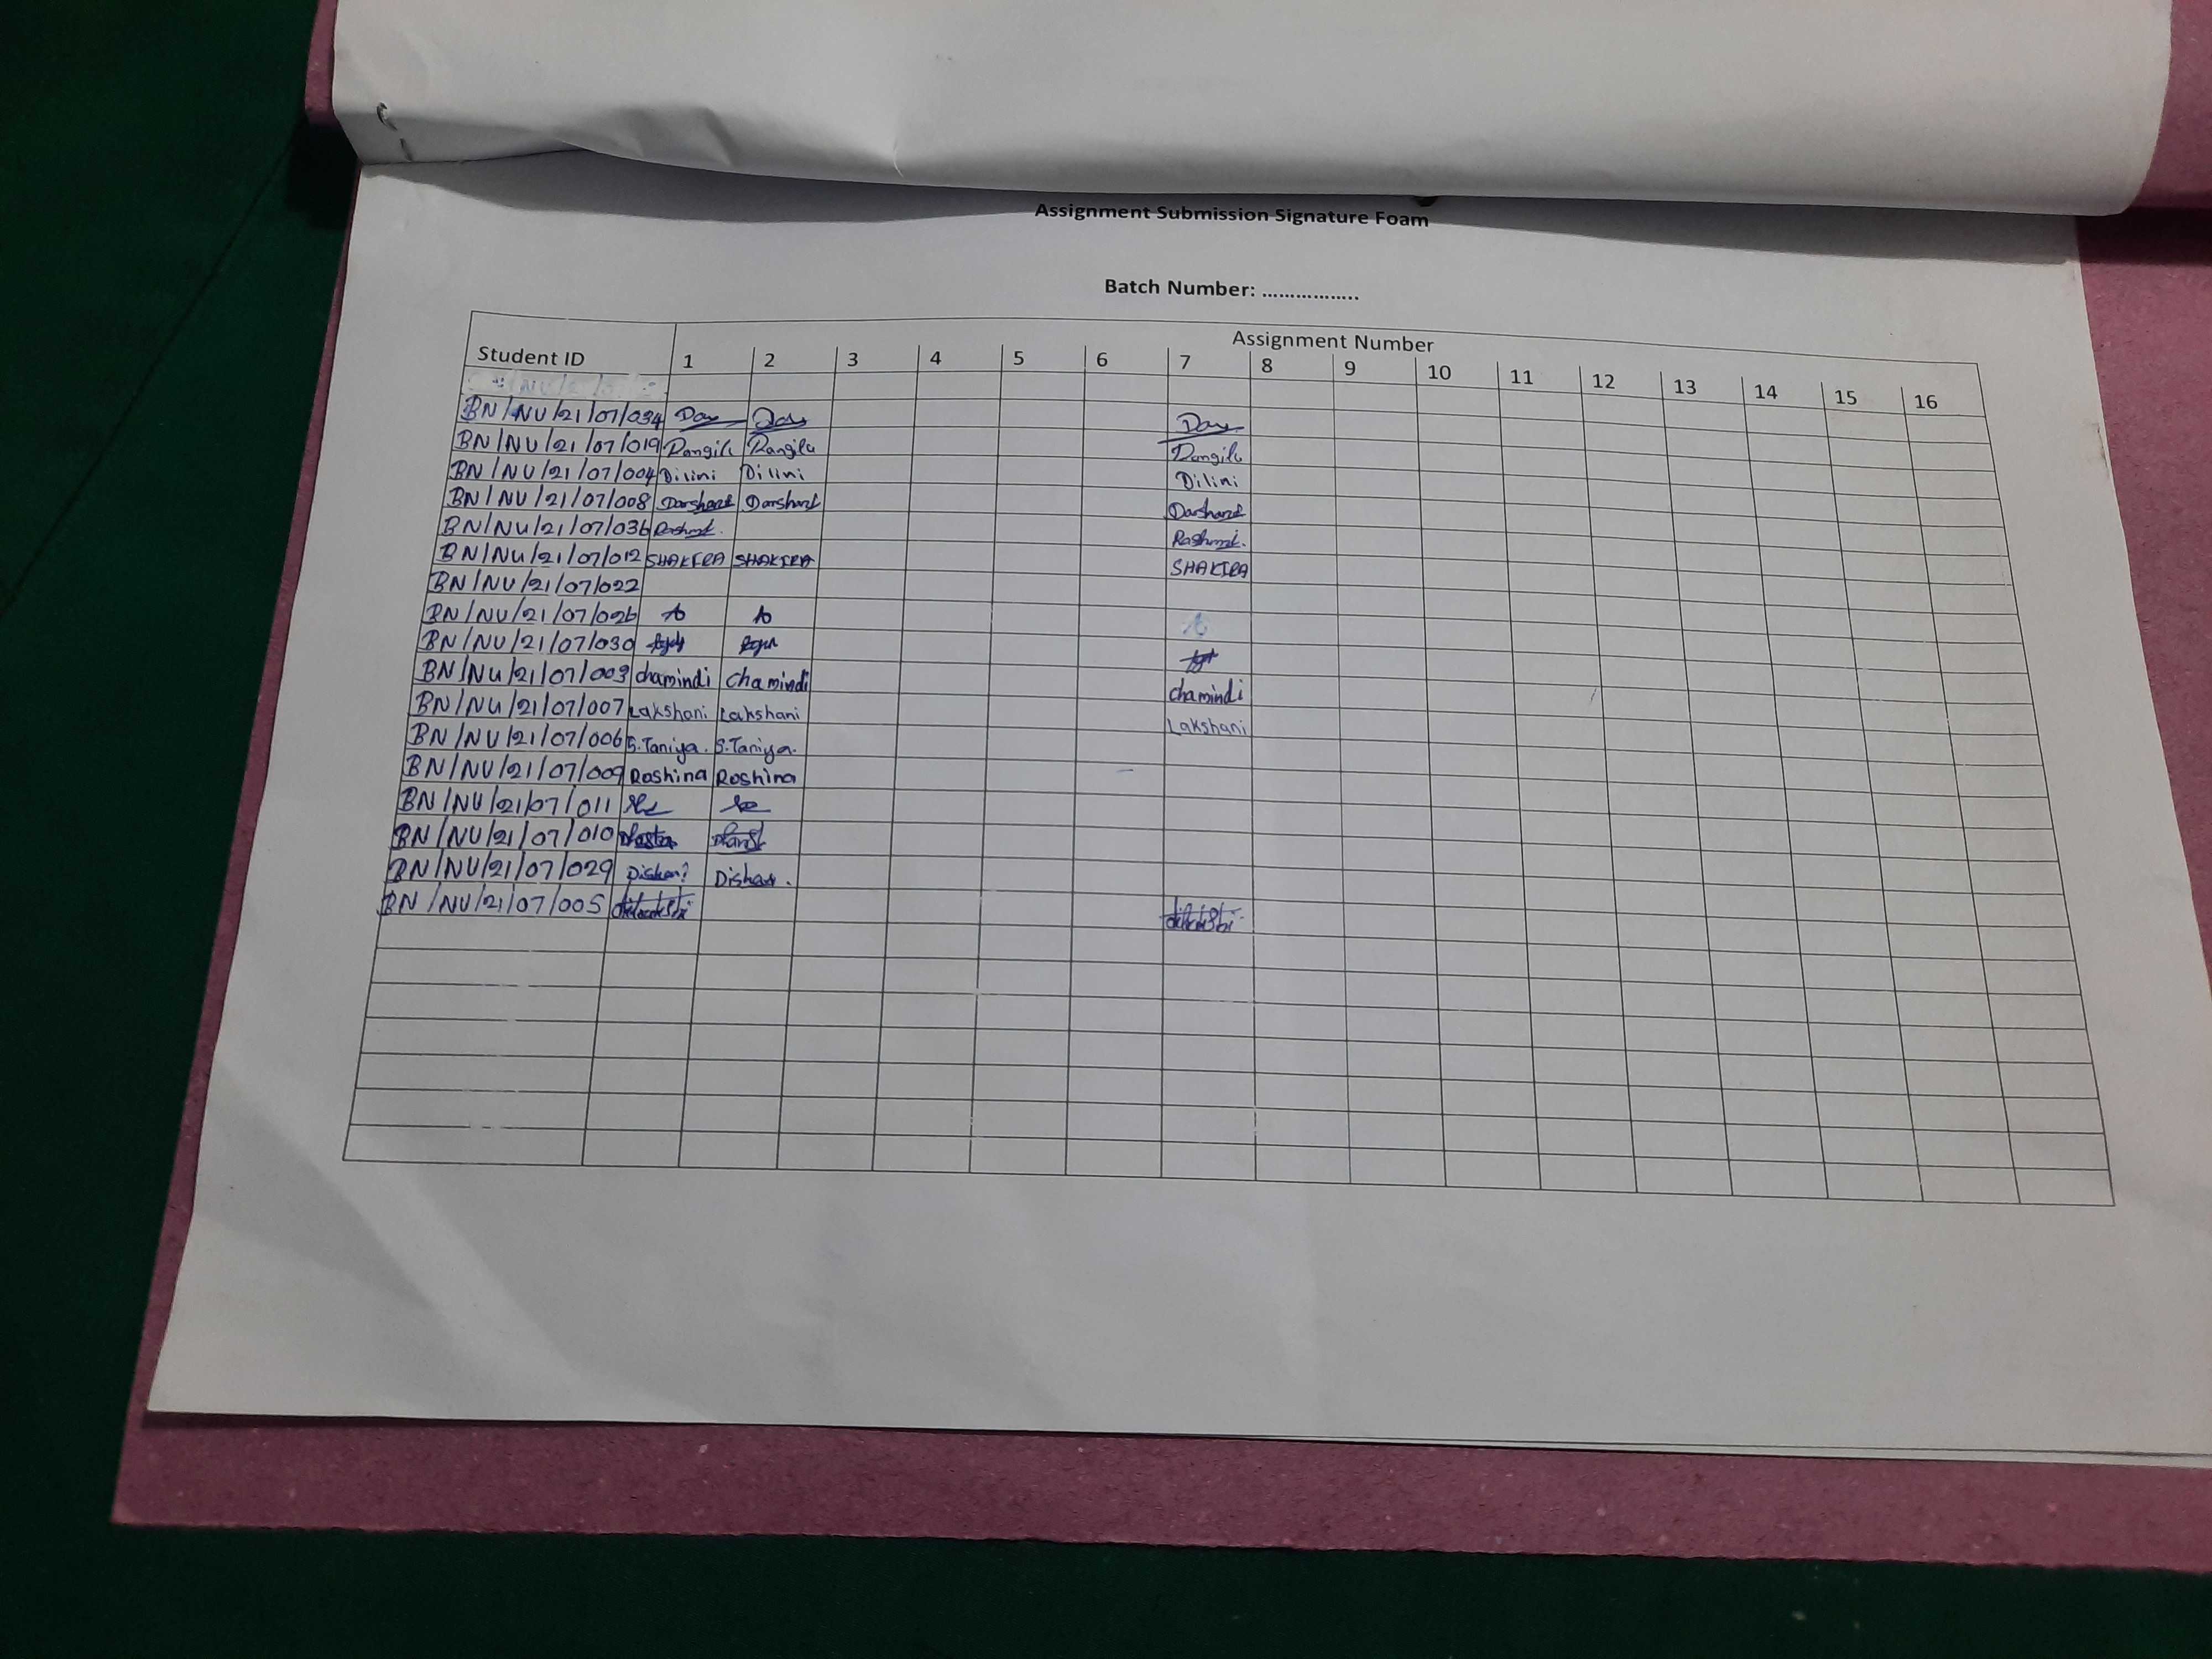 Assignment Submission Signature Foam
Batch Number: ................
Assignment Number
Student ID 1 2 3 4 5 6 7 8 9 10 11 12 13 14 15 16
BN/NU/21/07/034
BN/NU/21/07/019 Dangili
BN/NU/21/07/004 Dilini Dilini Dilini
BN/NU/21/07/008 Darshani Darshani Darshani
BN/NU/21/07/036
BN/NU/21/07/012 SHAKIRA SHAKIRA SHAKIRA
BN/NU/21/07/022
BN/NU/21/07/026
BN/NU/21/07/030
BN/NU/21/07/003 chamindi chamindi chamindi
BN/NU/21/07/007 Lakshani Lakshani Lakshani
BN/NU/21/07/006 S.Taniya. S.Taniya.
BN/NU/21/07/009 Roshina Roshina
BN/NU/21/07/011
BN/NU/21/07/010
BN/NU/21/07/029
BN/NU/21/07/005